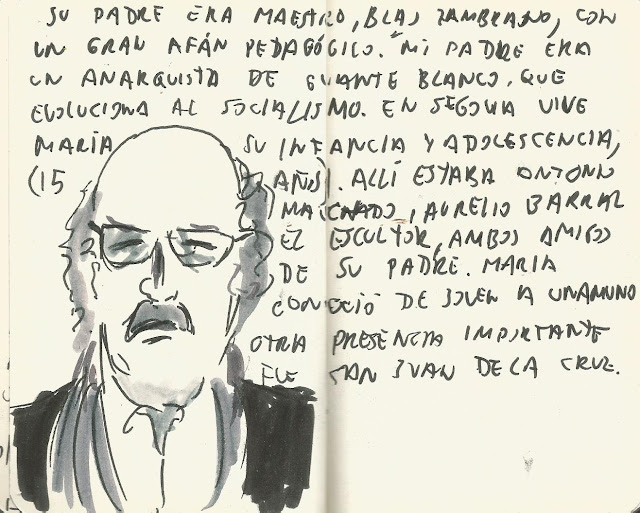 SU PADRE ERA MAESTRO, BLAS ZAMBRANO, CON
UN GRAN AFÁN PEDAGÓGICO. "MI PADRE ERA
UN ANARQUISTA DE GUANTE BLANCO. QUE
EVOLUCIONA AL SOCIALISMO. EN SEGOVIA VIVE
MARÍA SU INFANCIA Y ADOLESCENCIA,
(15 AÑOS). ALLÍ ESTABA ANTONIO
MACHADO, AURELIO BARRAL
EL ESCULTOR, AMBOS AMIGOS
DE SU PADRE. MARIA
CONOCIÓ DE JOVEN A UNAMUNO
OTRA PRESENCIA IMPORTANTE
FUE SAN JUAN DE LA CRUZ.